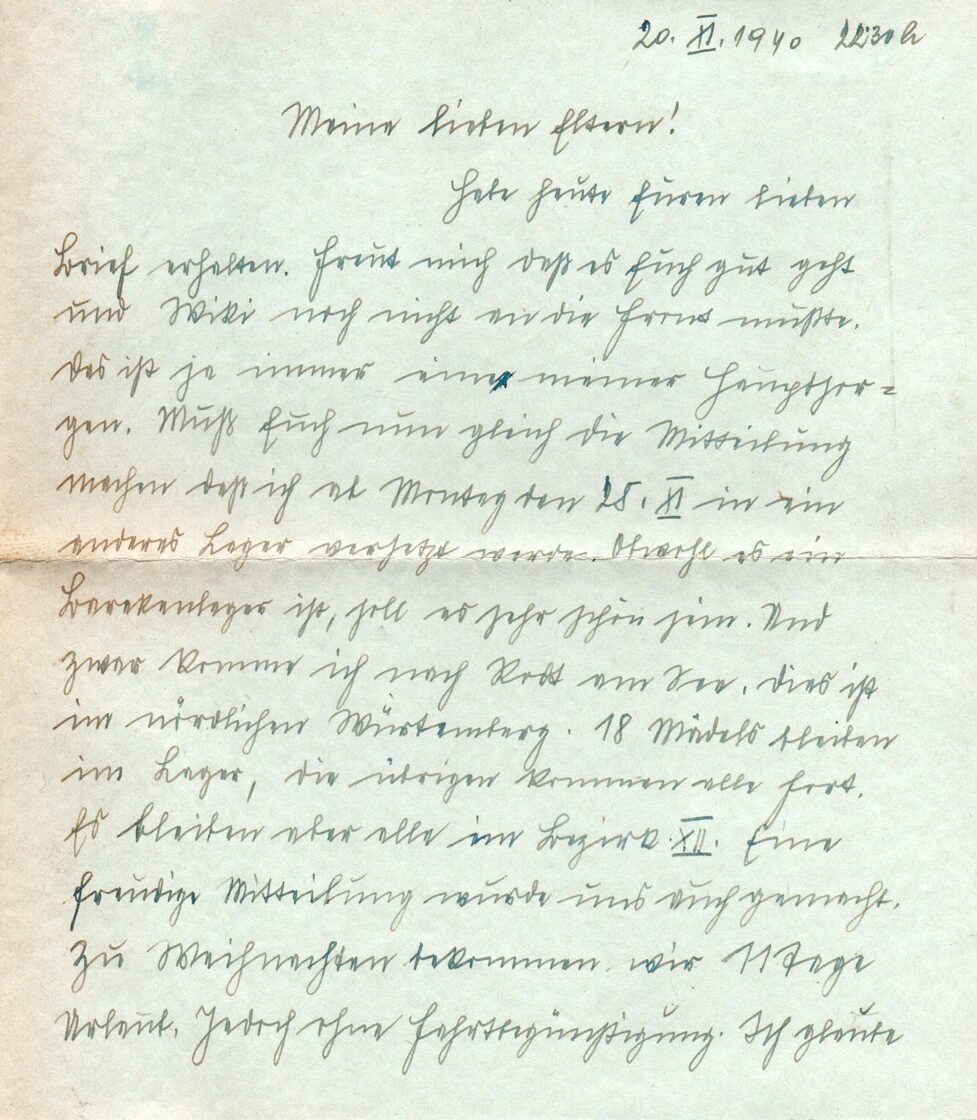 20. XI. 1940 22:30 h
Meine lieben Eltern!
Habe heute Euren lieben
Brief erhalten. Freut mich daß es Euch gut geht
und Wiki noch nicht an die Front mußte.
Das ist ja immer eine meiner Hauptsor=
gen. Muß Euch nun gleich die Mitteilung
machen daß ich ab Montag den 25. XI in ein
anderes Lager versetzt werde. Obwohl es ein
Barakenlager ist, soll es sehr schön sein. Und
zwar komme ich nach Rot am See. Dies ist
im nördlichen Würtemberg. 18 Mädels bleiben
im Lager, die übrigen kommen alle fort.
Es bleiben aber alle im Bezirk XII. Eine
freudige Mitteilung wurde uns auch gemacht.
Zu Weihnachten bekommen wir 11 Tage
Urlaub. Jedoch ohne Fahrtbegünstigung. Ich glaube